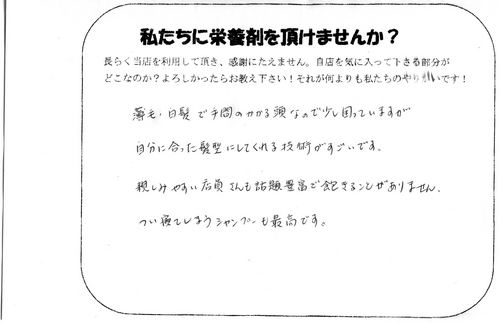 私たちに栄養剤を頂けませんか？
長らく当店を利用して頂き、感謝にたえません。自店を気に入って下さる部分が
どこなのか？よろしかったらお教え下さい！それが何よりも私たちのやりがいです！
薄毛・白髪で手間のかかる頭なので少し困っていますが
自分に合った髪型にしてくれる技術がすごいです。
親しみやすい店員さんも話題豊富で飽きることがありません。
つい寝てしまうシャンプーも最高です。